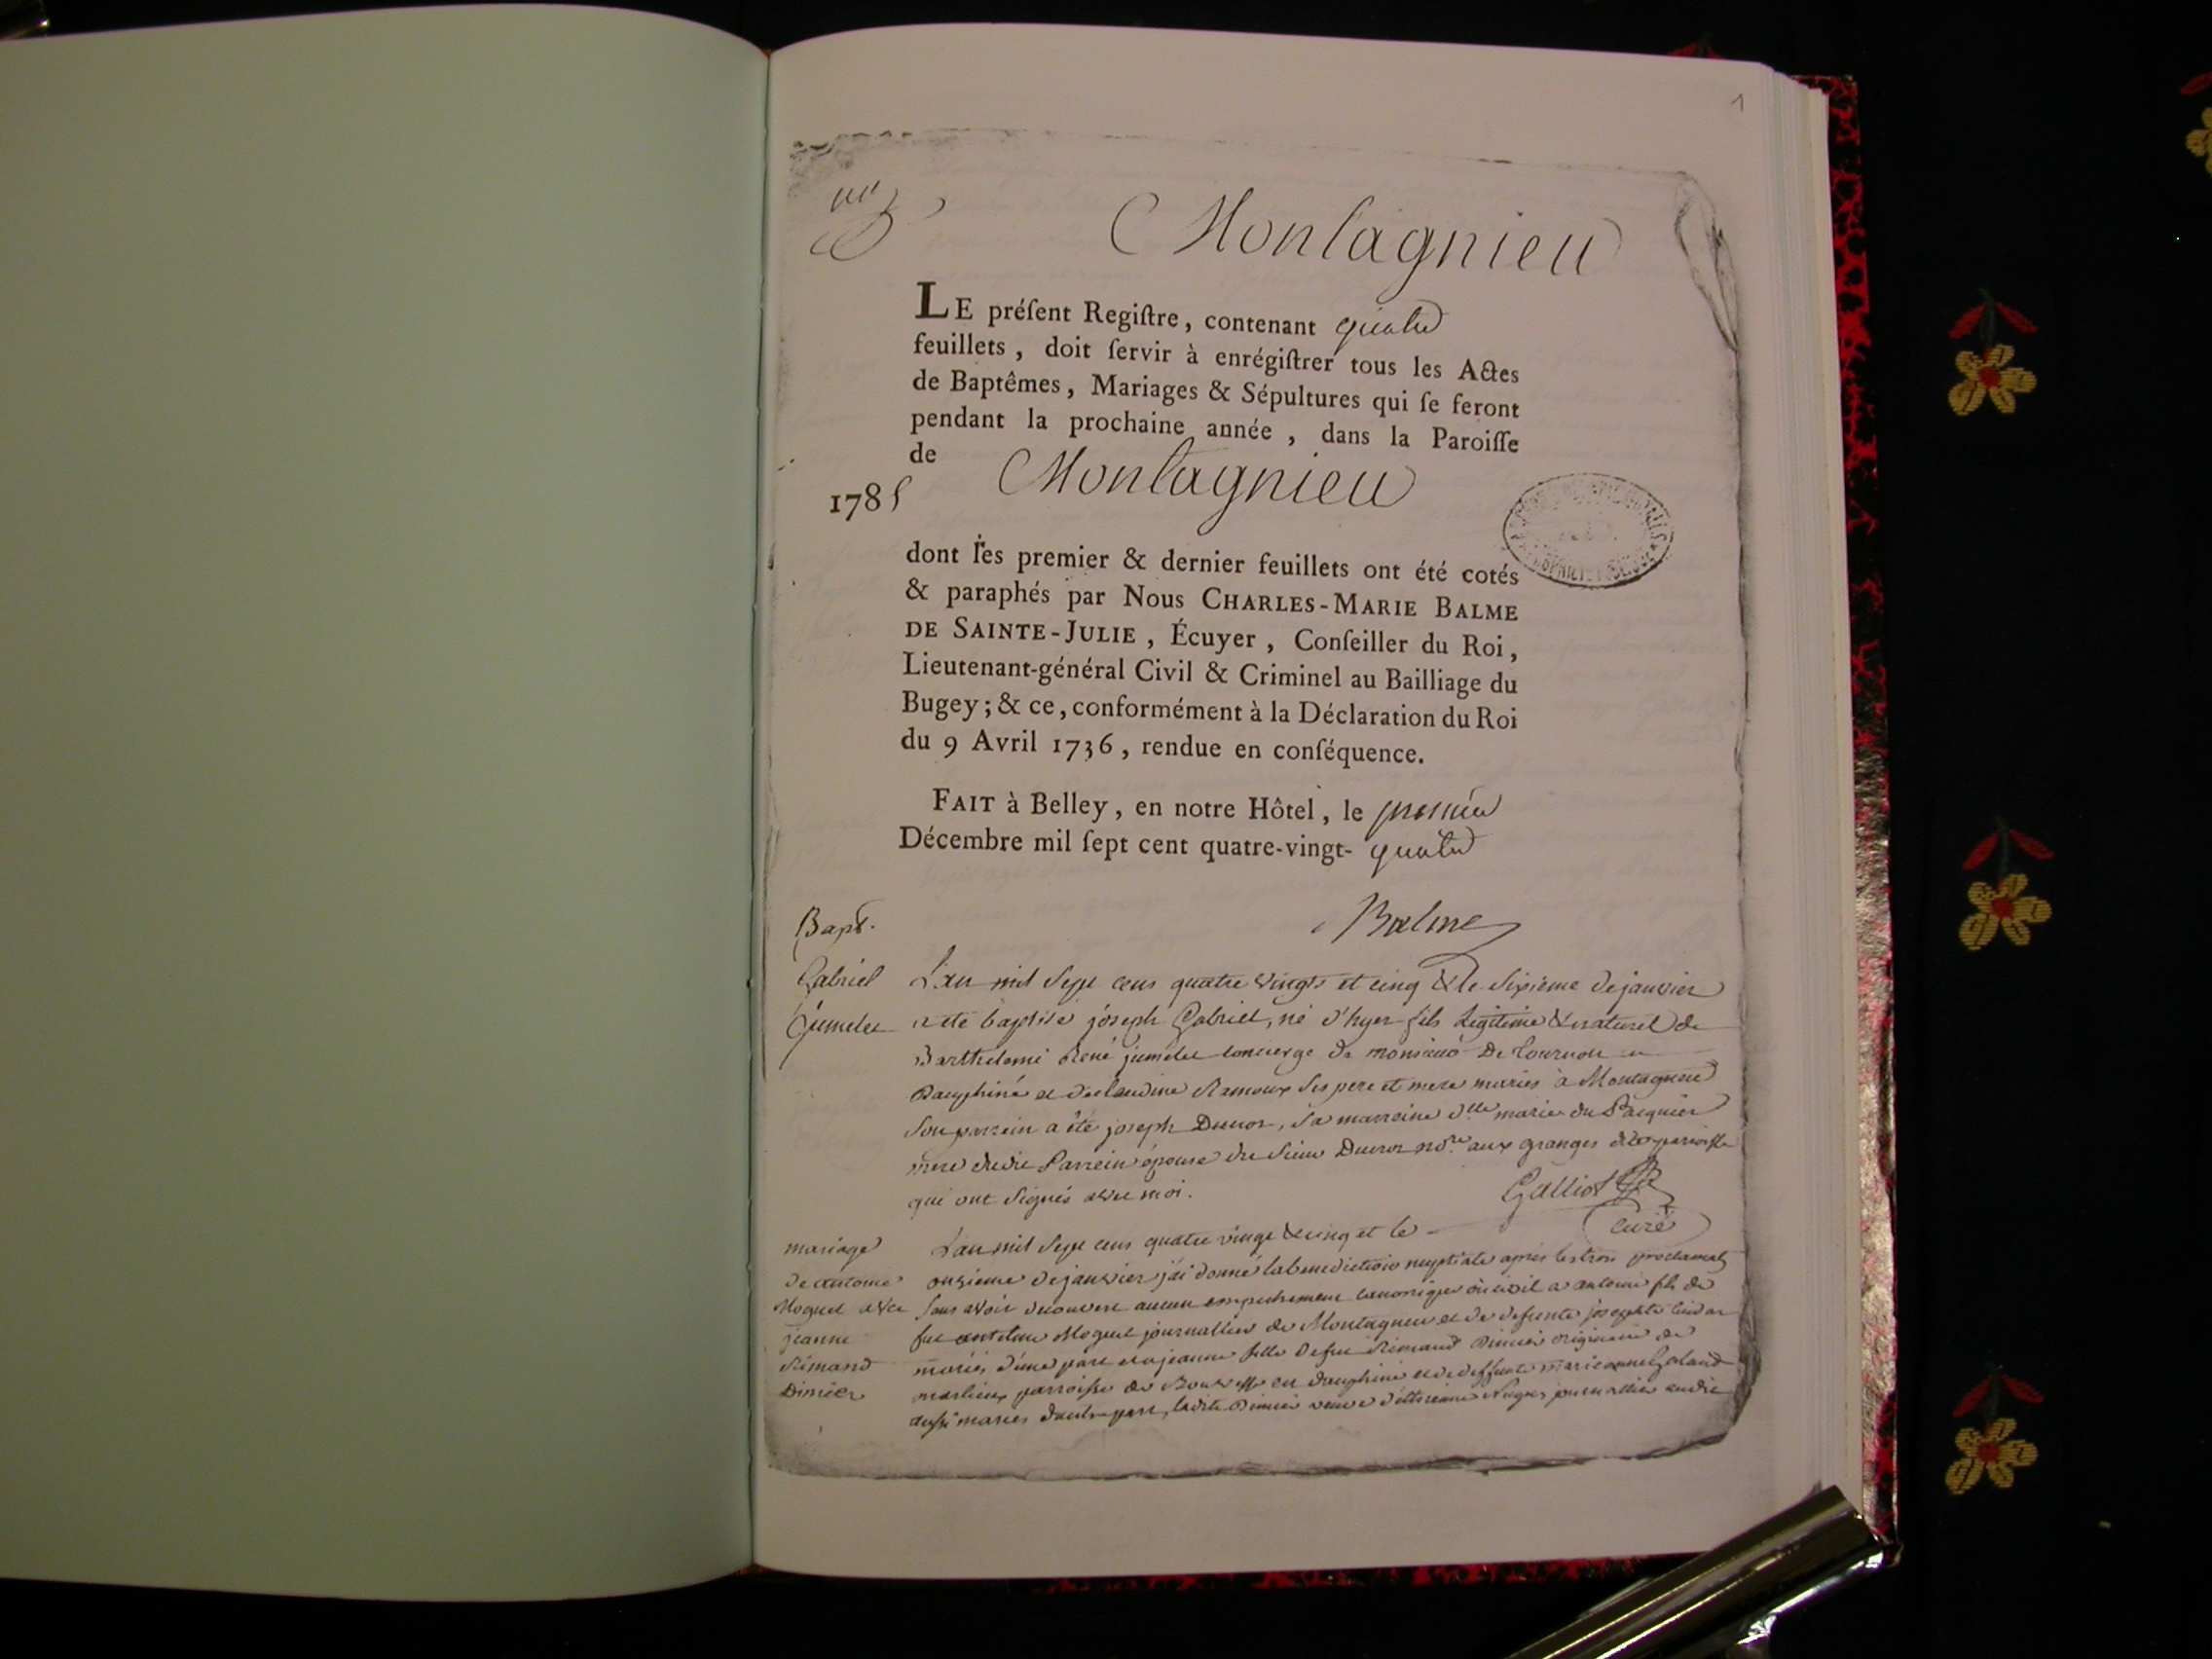 1
Montagnieu
LE préſent Regiſtre, contenant quatre
feuillets, doit ſervir à enrégiſtrer tous les Actes
de Baptêmes, Mariages & Sépultures qui ſe feront
pendant la prochaine année, dans la Paroiſſe
de Montagnieu
1785
dont les premier & dernier feuillets ont été cotés
& paraphés par Nous CHARLES-MARIE BALME
DE SAINTE-JULIE, Écuyer, Conſeiller du Roi,
Lieutenant-général Civil & Criminel au Bailliage du
Bugey; & ce, conformément à la Déclaration du Roi
du 9 Avril 1736, rendue en conſéquence.
FAIT à Belley, en notre Hôtel, le premier
Décembre mil ſept cent quatre-vingt-quatre
Balme
Bapt.
Gabriel
Jumelet
L'an mil sept cens quatre vingts et cinq & le sixieme de janvier
a été baptisé joseph Gabriel, né d'hyer fils légitime & naturel de
Barthelemi René jumelet concierge de monsieur De en
Dauphiné et de claudine ses pere et mere mariés à Montagnieu
son parrein a été joseph, sa marreine dlle marie du Pasquier
mere dudit Parrein épouse du sieur nore aux granges parroisse
qui ont signés avec moi.
Galliot
curé
mariage
de antoine
Moguet avec
jeanne
Rimand
Dimier
L'an mil sept cens quatre vingt & cinq et le
onzieme de janvier j'ai donné la benediction nuptiale après les trois proclamats
sans avoir decouvert aucun empechement canonique ou civil a antoine fils de
feu Moguet journallier de Montagnieu et de defunte josephte
mariés d'une part et a jeanne fille de feu Rimand Dimier originaire de
marlieu parroisse de en dauphiné et de deffunte marie anne Galand
aussi mariés d'autre part, ladite Dimier veuve journallier audit